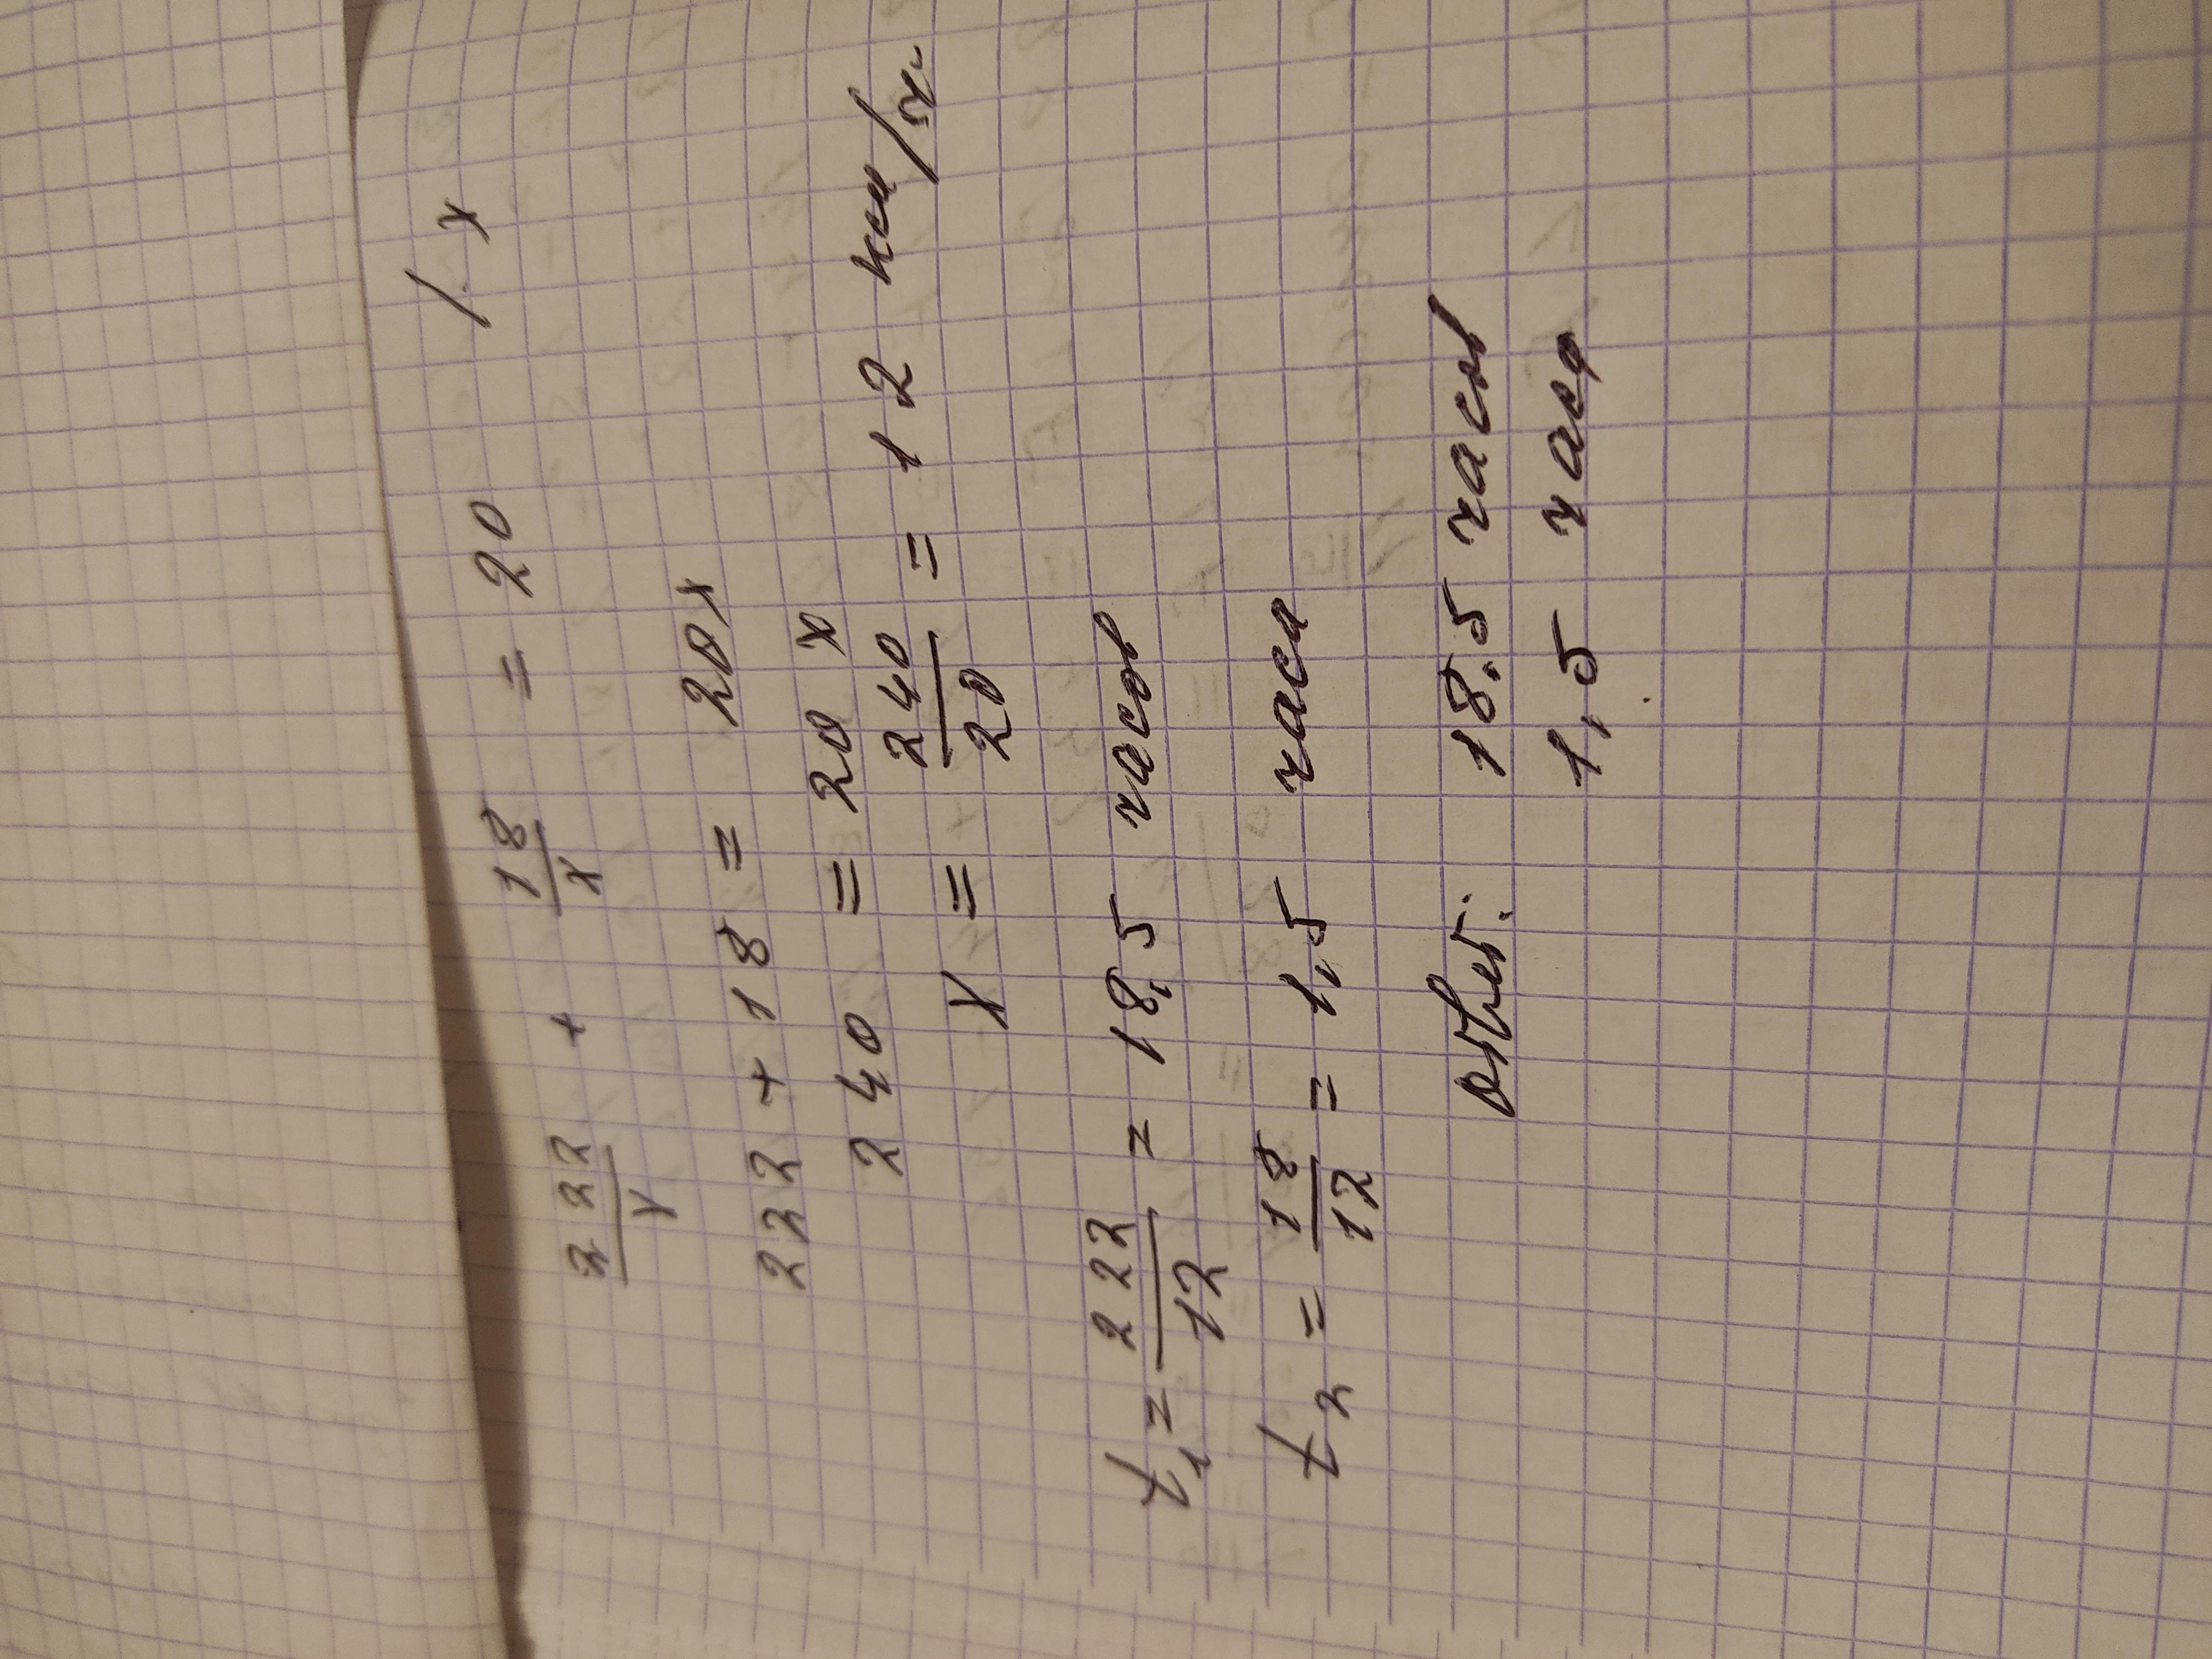 222/x + 18/x = 20 / · x
222 + 18 = 20x
240 = 20x
x = 240/20 = 12 км/ч.
t₁ = 222/12 = 18,5 часов
t₂ = 18/12 = 1,5 часа
Ответ: 18,5 часов
1,5 часа